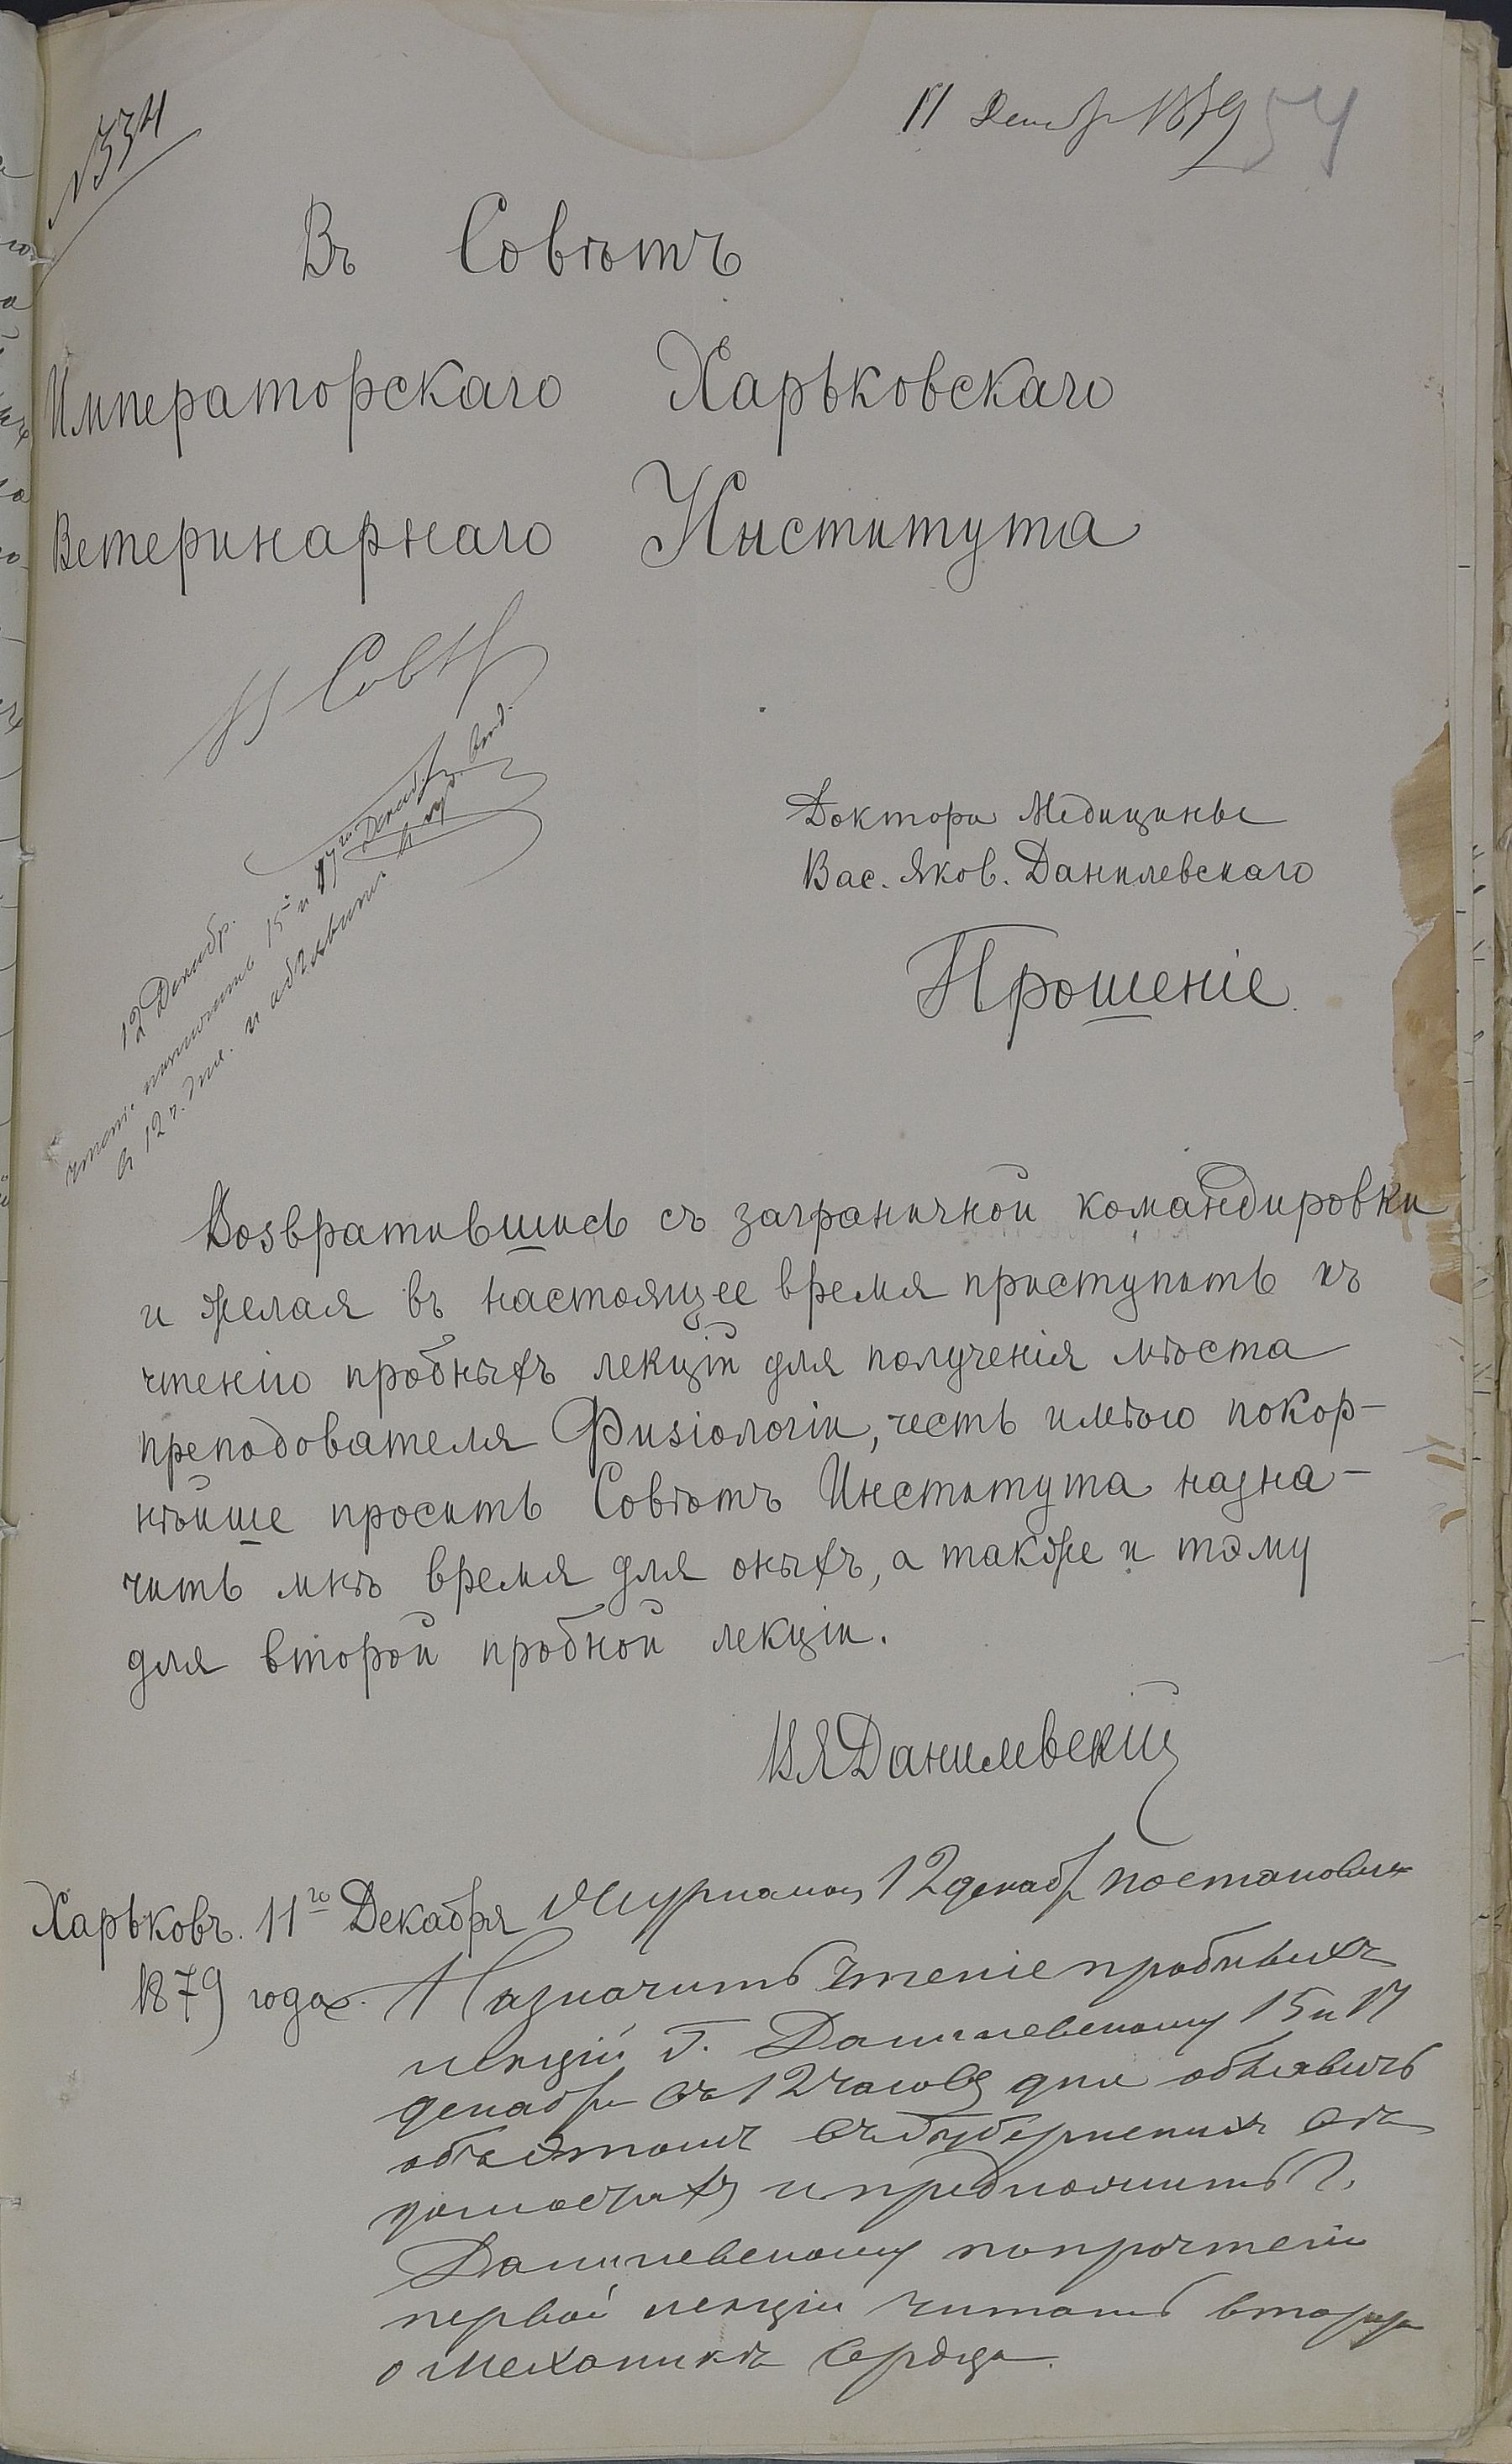 № 334
11 Декабр 1879
54
Въ Совѣтъ
Императорскаго Харьковскаго
Ветеринарнаго Института
Въ Совѣтъ
12 Декабр.
чтеніе назначить 15 и 17го Декабр.
въ 12 ч. дня. и объявить въ Губ. Вѣд.
Доктора Медицины
Вас. Яков. Данилевскаго
Прошеніе.
Возвратившись съ заграничной командировки
и желая въ настоящее время приступить къ
чтенію пробныхъ лекцій для полученія мѣста
преподователя Физіологіи, честь имѣю покор-
нѣйше просить Совѣтъ Института назна-
чить мнѣ время для оныхъ, а также и тэму
для второй пробной лекціи.
ВЯДанилевскій
Харьковъ. 11го Декабря
1879 года.
Журналом 12 декабр постановлен
Назначить чтеніе пробныхъ
лекцій Г. Данилевскому 15 и 17
декабря въ 12 часовъ дня объявить
объ этомъ въ Губернских вѣ
домостяхъ и предложить Г.
Данилевскому по прочтеніи
первой лекціи читать вторую
о Механикѣ сердца.